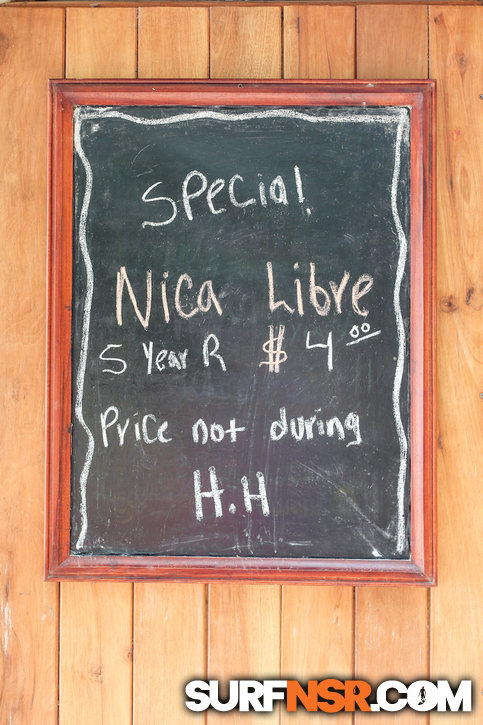 Special!
Nica Libre
5 Year R $4.00
Price not during
H.H
SURFNSR.COM